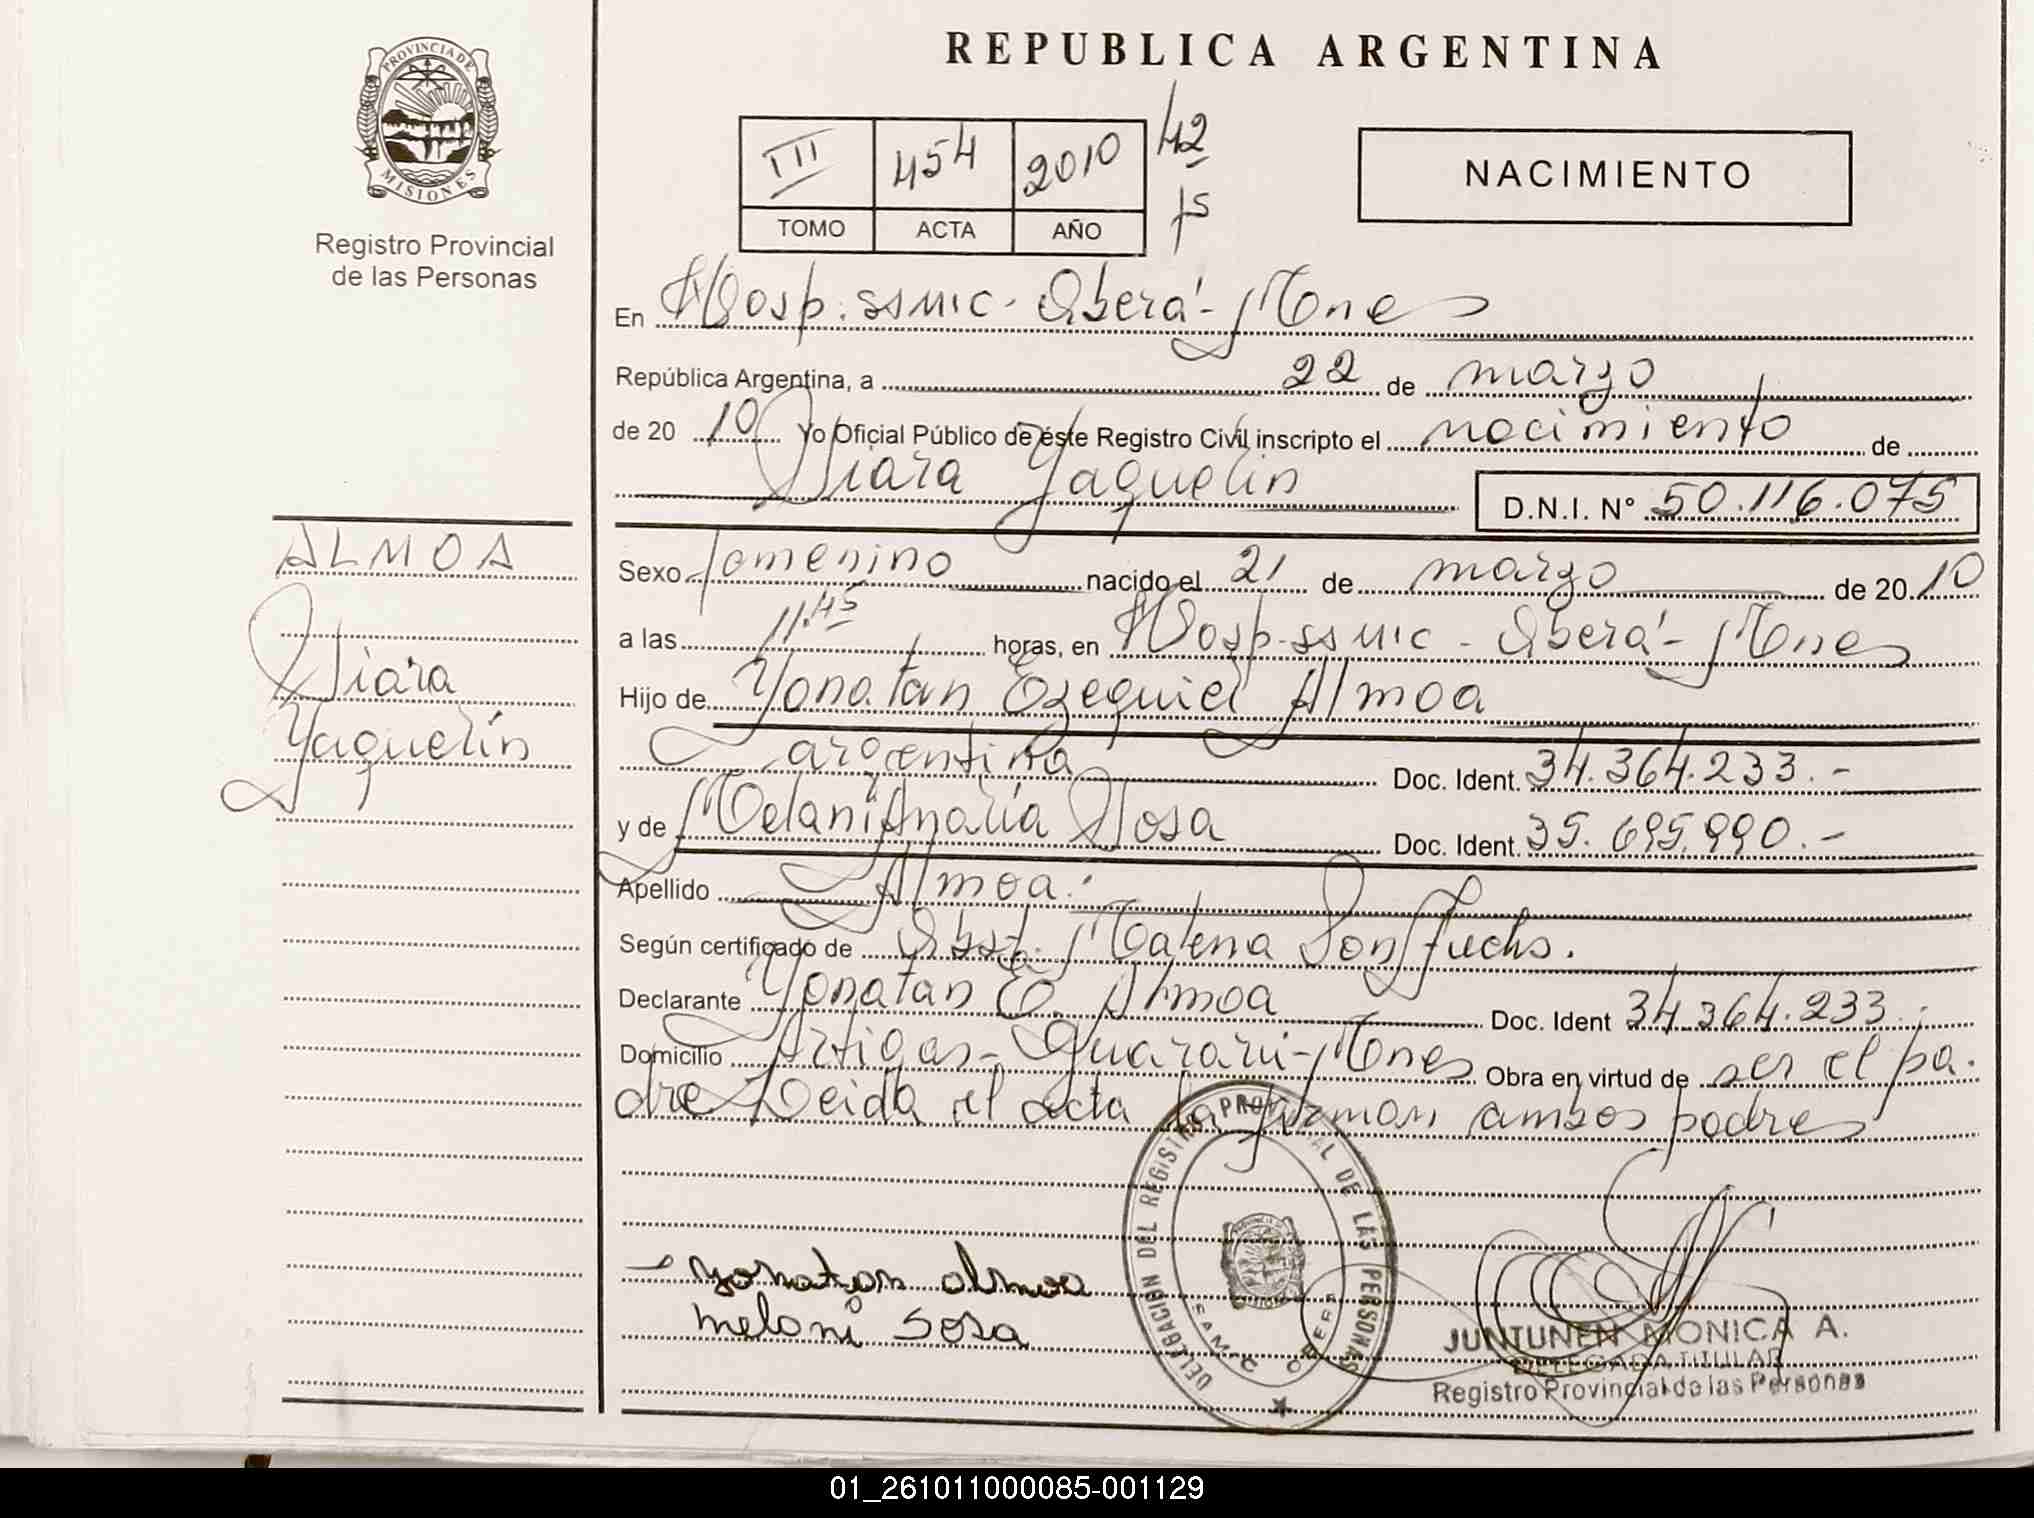 REPUBLICA ARGENTINA
PROVINCIA DE
MISIONES
Registro Provincial
de las Personas
III 454 2010 42
TOMO ACTA AÑO fs
NACIMIENTO
En Hosp. SSMIC - Oberá - Mnes
República Argentina, a 22 de marzo
de 20 10 Yo Oficial Público de éste Registro Civil inscripto el nacimiento de
Siara Yaquelin D.N.I. Nº 50.116.075
ALMOA
Siara
Yaquelin
Sexo femenino nacido el 21 de marzo de 20 10
a las 11.45 horas, en Hosp. SSMIC - Oberá - Mnes
Hijo de Yonatan Ezequiel Almoa
argentina Doc. Ident. 34.364.233.-
y de Melani Anaria Sosa Doc. Ident. 35.695.990.-
Apellido Almoa.
Según certificado de Obst. Malena Fuchs.
Declarante Yonatan E. Almoa Doc. Ident 34.364.233.
Domicilio Artigas - Guaraní - Mnes Obra en virtud de ser el pa-
dre Leida el acta la firman ambos padres
DELEGACION DEL REGISTRO PROVINCIAL DE LAS PERSONAS
SAMIC OBERA
yonatan almoa
melani sosa
JUNTUNEN MONICA A.
DELEGADA TITULAR
Registro Provincial de las Personas
01_261011000085-001129